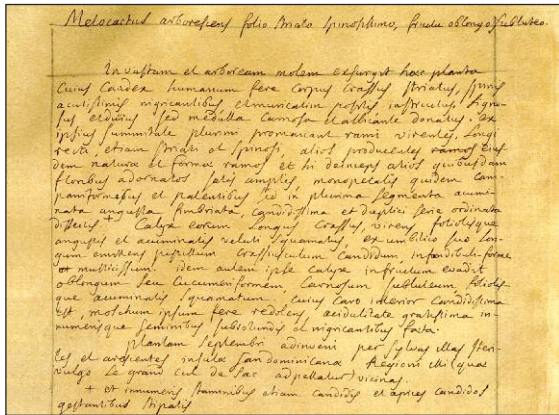 Melocactus arborescens folio striato spinosissimo, fructu oblongo subluteo.
In vastum et arboream molem exsurgit haec planta
cuius Caudex humanum fere corpus crassus striatus, spinis
acutissimis nigricantibus et muricatim positis instructus. ligno-
sus et durus sed medulla carnosa et albicante donatus. ex
ipsius summitate plurimi promanant rami virentes, longi
recti etiam striati et spinosi, alios producentes ramos eius
dem naturae et formae ramos et hi deinceps alios quibusdam
floribus adornatos satis amplis, monopetalis quidem cam-
paniformibus et patentibus sed in plurima segmenta acumi-
nata angusta fimbriata, candidissima et duplici serie ordinata
dissectis + Calyx eorum longus crassus, virens foliolisque
angustis et acuminatis veluti squamatus, ex umbilico suo lon-
gum emittens pistillum crassiusculum candidum, infundibuli-forme
et multifissum. idem autem ipse calyx in fructum evadit
oblongum seu cucumeriformem, carnosum subluteum, foliolis
que acuminatis squamatum. cuius caro interior candidissima
est, moschum ipsum fere redolens, aciditate gratissima in-
numerisque seminibus subrotundis et nigricantibus foeta.
plantam septembri adinveni per sylvas illas steri-
les et ardentes insulae sandominicanae Regioni illi (quae
vulgo le grand cul de sac adpellatur) vicinas.
+ et innumeris staminibus etiam candidis et apices candidos
gestantibus stipatis